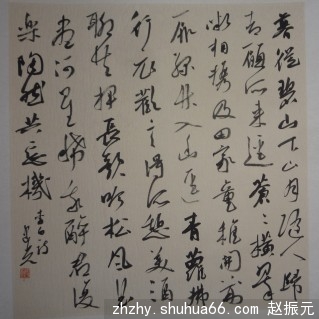 暮從碧山下山月隨人歸
却顧所來逕蒼〻橫翠
微相攜及田家童稚開荊
扉綠竹入幽逕青蘿拂
行衣歡言得所憩美酒
聊共揮長歌吟松風曲
盡河星稀我醉君復
樂陶然共忘機 李白詩
zhzhy.shuhua66.com 赵振元